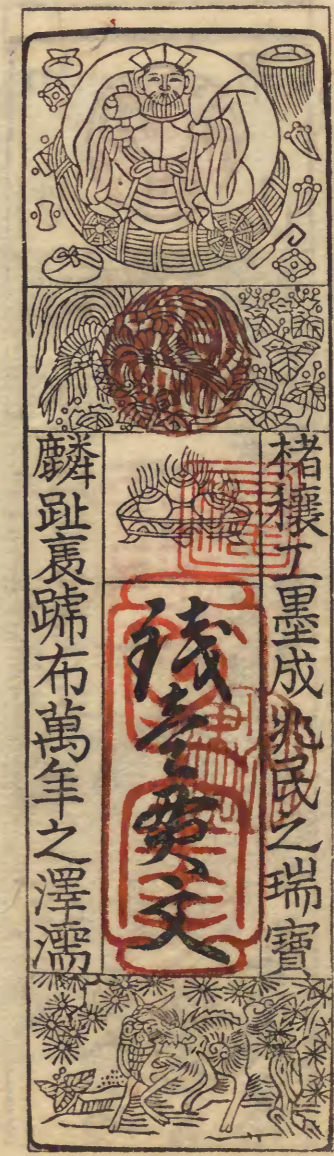 楮穰工墨成兆民之瑞寶
錢壹貫文
麟趾裹蹏布萬年之澤濡